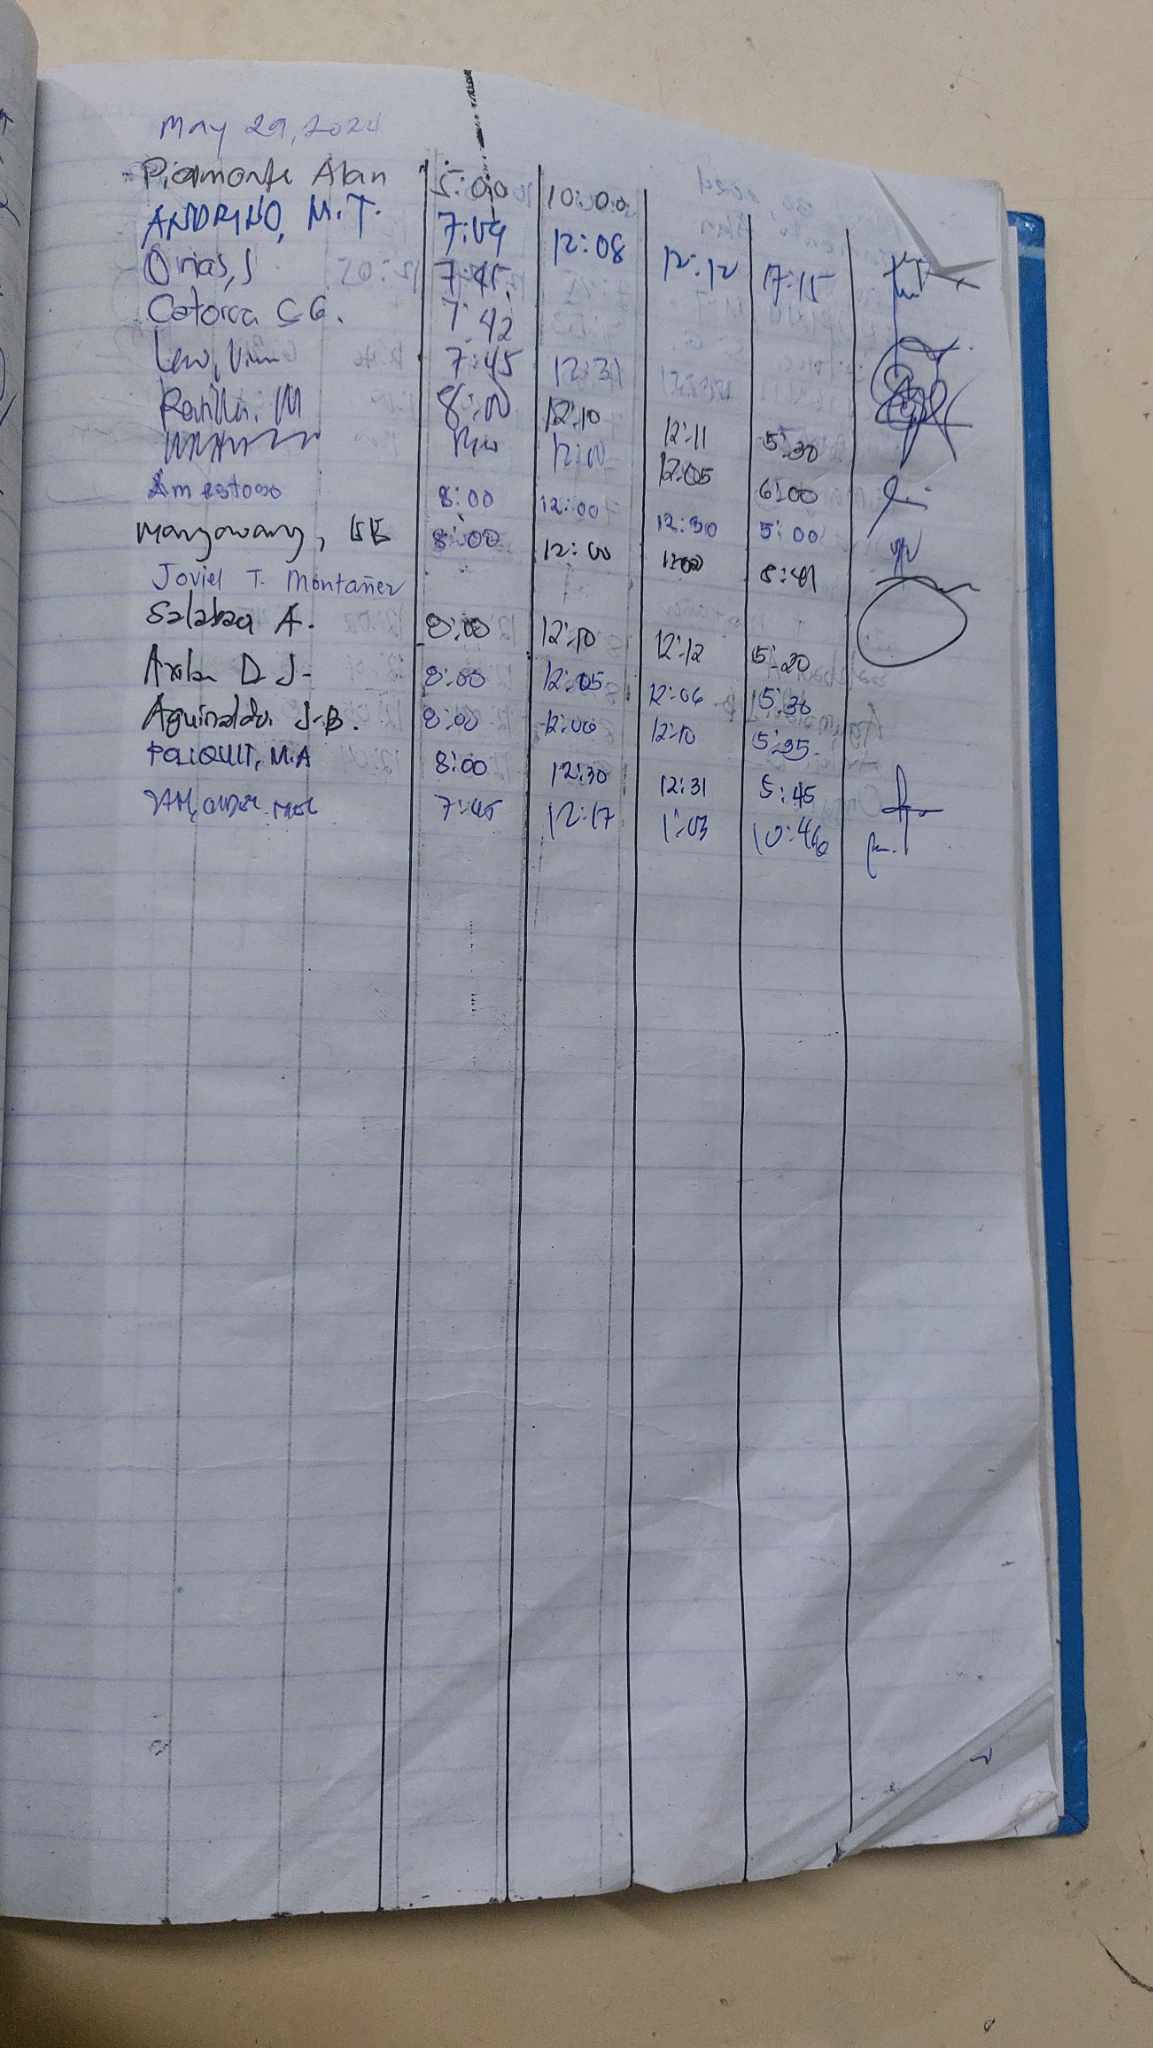 May 29, 2024
Piamonte Alan 5:00 10:00
ANDRINO, M.T. 7:09 12:08 12:12 17:15
Orias, J 7:45
Catorca C G. 7:42
7:45 12:31
8:00 12:10 12:11 5:30
12:05 6:00
Amestoso 8:00 12:00 12:30 5:00
Mangawang, 8:00 12:00 1:00
Joviel T. Montañer
Salabao A. 8:00 12:10 12:12 5:20
D J- 8:00 12:05 12:06 5:30
Aguinaldo J.B. 8:00 12:06 12:10 5:35
POLIQUIT, M.A 8:00 12:30 12:31 5:45
7:45 12:17 1:03 10:46